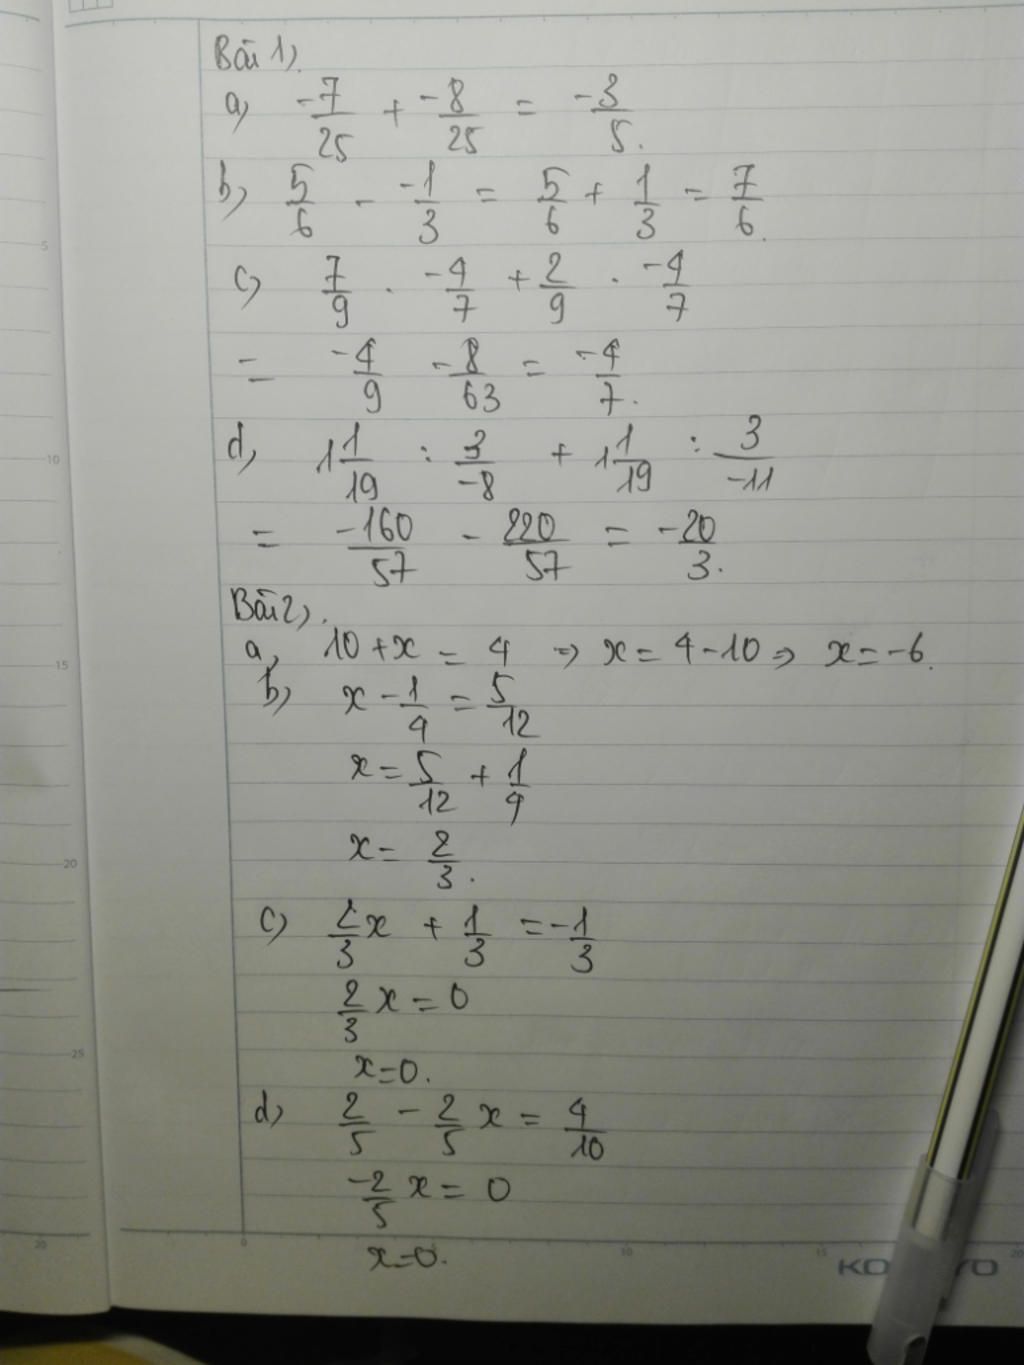 Bài 1).
a) -7/25 + -8/25 = -3/5.
b) 5/6 - -1/3 = 5/6 + 1/3 = 7/6.
c) 7/9 . -4/7 + 2/9 . -4/7
= -4/9 - 8/63 = -4/7.
d, 1 1/19 : 3/-8 + 1 1/19 : 3/-11
= -160/57 - 220/57 = -20/3.
Bài 2).
a, 10 + x = 4 => x = 4 - 10 => x = -6.
b) x - 1/4 = 5/12
x = 5/12 + 1/4
x = 2/3.
c) 2/3 x + 1/3 = -1/3
2/3 x = 0
x = 0.
d) 2/5 - 2/5 x = 4/10
-2/5 x = 0
x = 0.
5
10
15
20
25
20
0
10
15
20